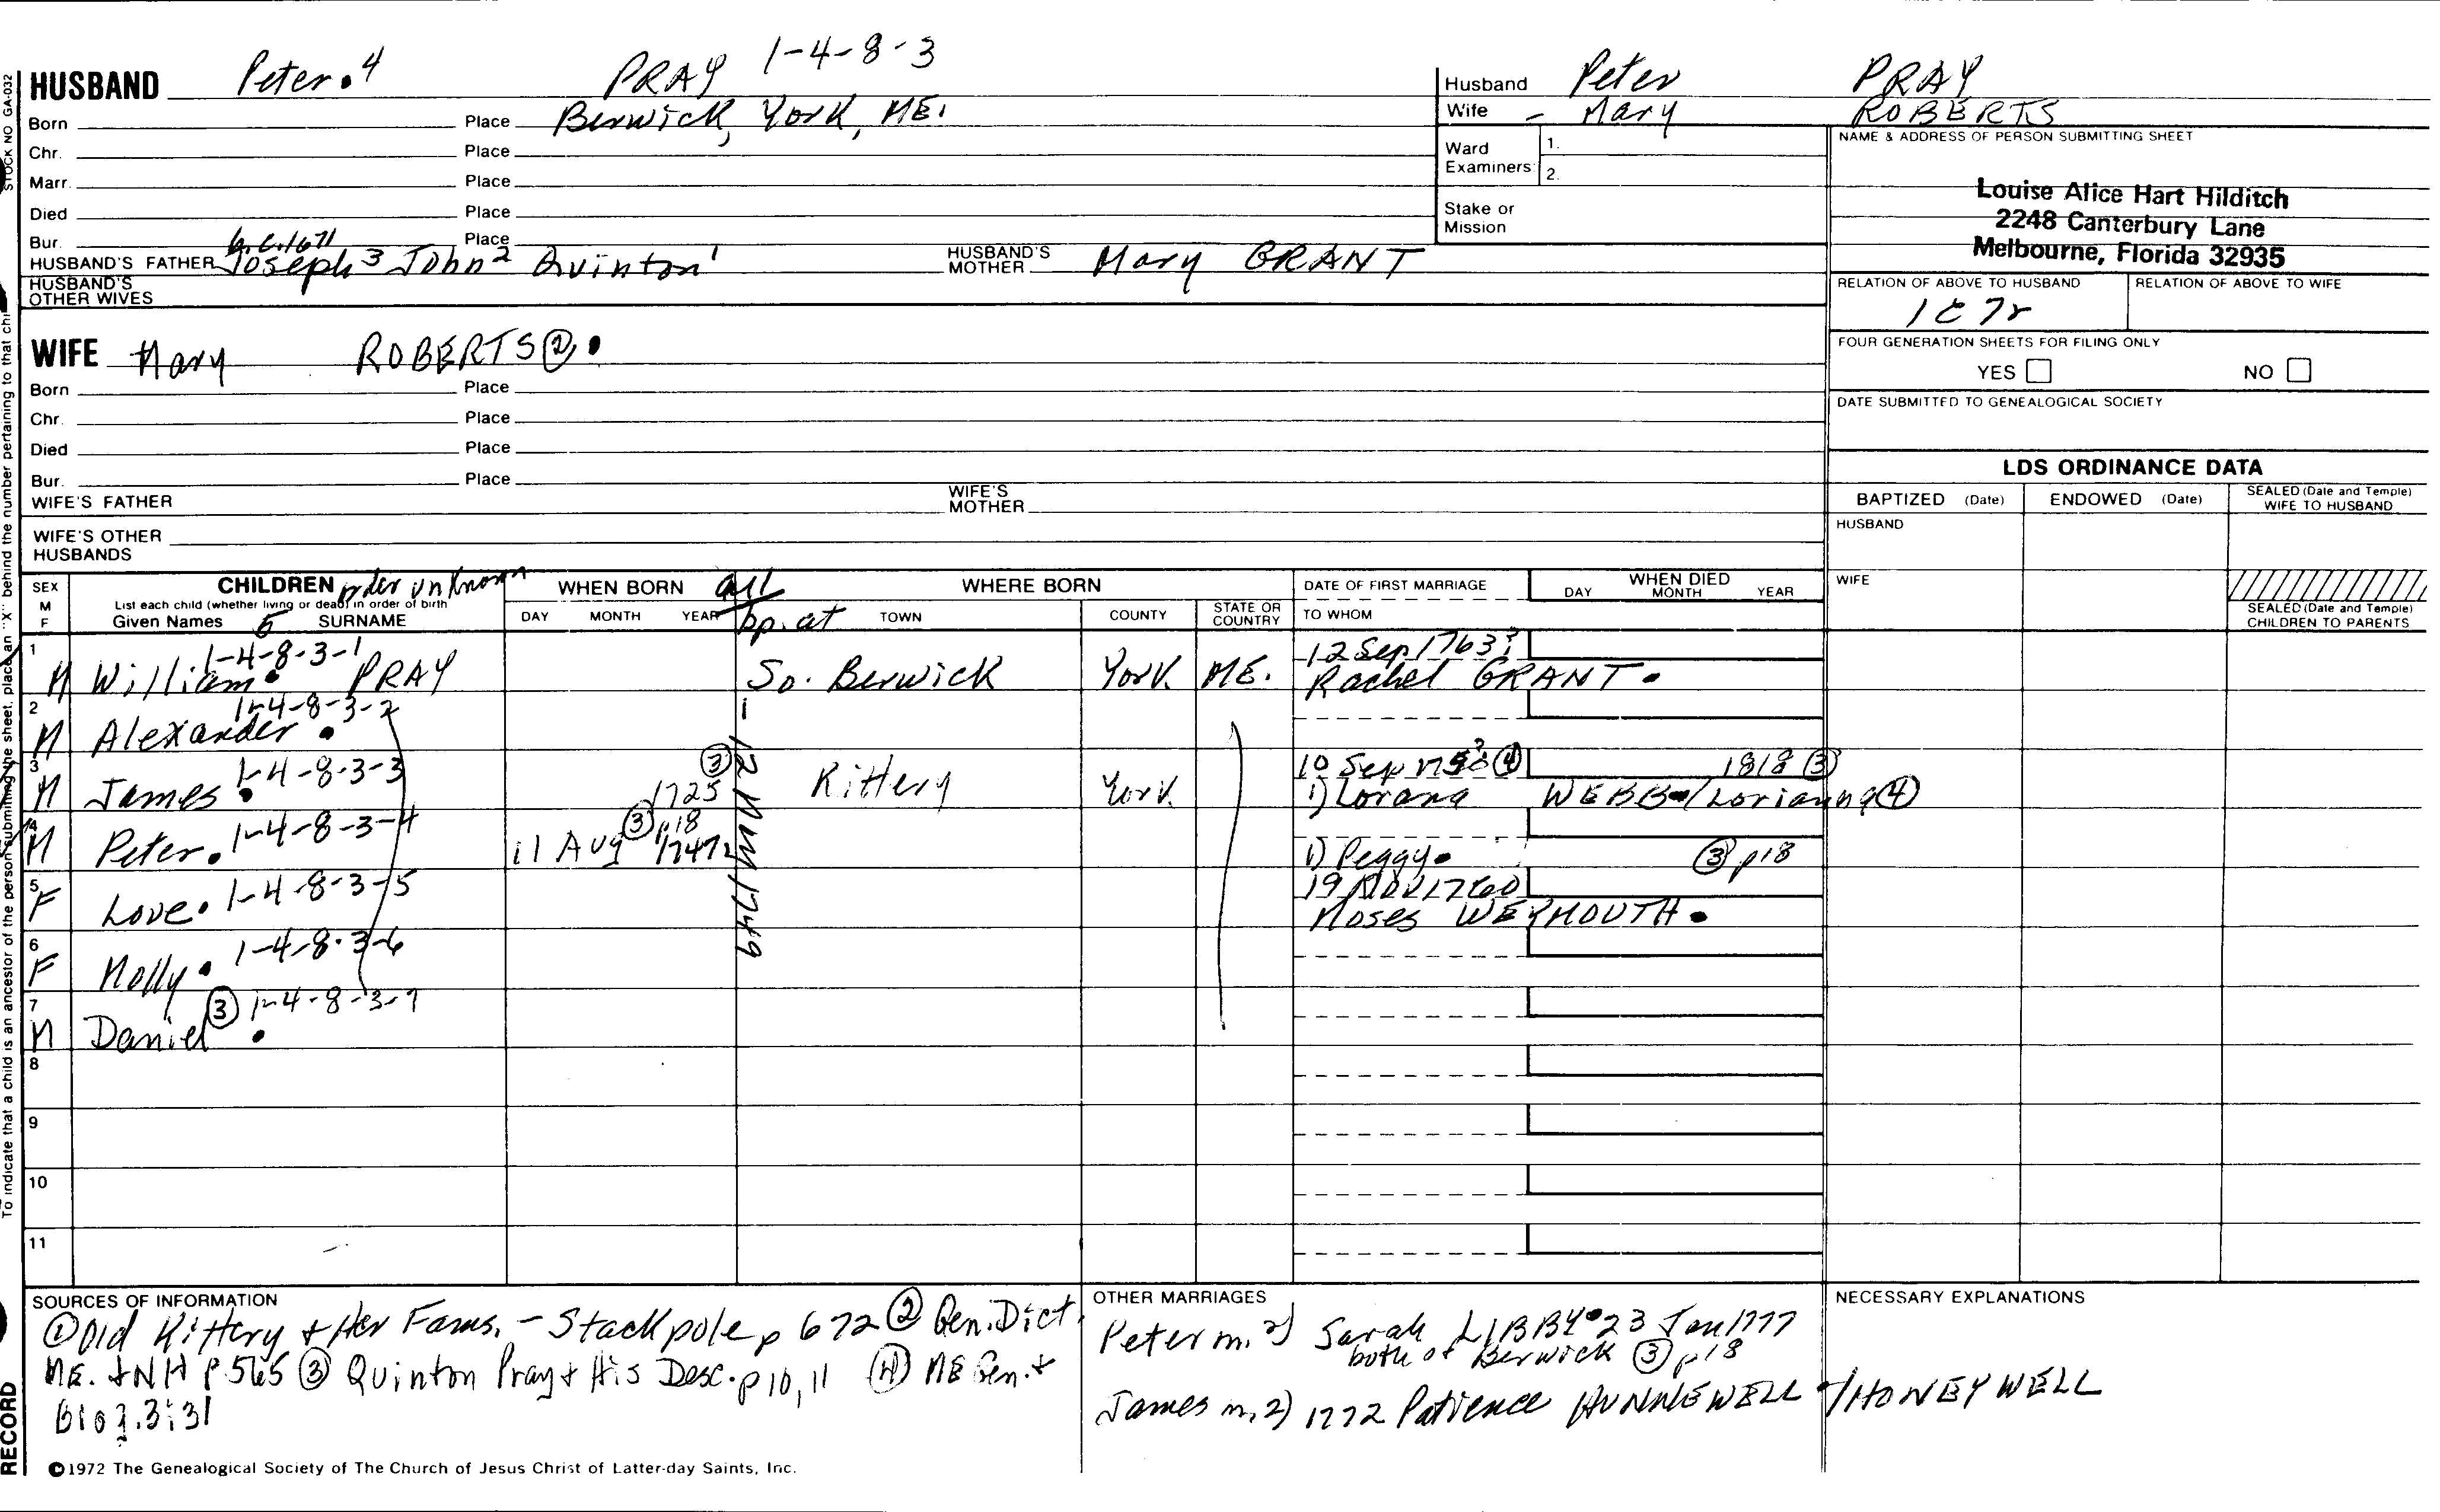 HUSBAND Peter 4 PRAY 1-4-8-3
Born Place Berwick, York, ME.
Chr. Place
Marr. Place
Died Place
Bur. Place
HUSBAND'S FATHER Joseph 3 John 2 Quinton 1 HUSBAND'S MOTHER Mary GRANT
HUSBAND'S OTHER WIVES
Husband Peter PRAY
Wife - Mary ROBERTS
Ward Examiners 1.
2.
Stake or Mission
NAME & ADDRESS OF PERSON SUBMITTING SHEET
Louise Alice Hart Hilditch
2248 Canterbury Lane
Melbourne, Florida 32935
RELATION OF ABOVE TO HUSBAND RELATION OF ABOVE TO WIFE
1C 7r
FOUR GENERATION SHEETS FOR FILING ONLY
YES NO
DATE SUBMITTED TO GENEALOGICAL SOCIETY
WIFE Mary ROBERTS ②
Born Place
Chr. Place
Died Place
Bur. Place
WIFE'S FATHER WIFE'S MOTHER
WIFE'S OTHER HUSBANDS
LDS ORDINANCE DATA
BAPTIZED (Date) ENDOWED (Date) SEALED (Date and Temple) WIFE TO HUSBAND
HUSBAND
WIFE
SEALED (Date and Temple) CHILDREN TO PARENTS
SEX M F CHILDREN order unknown WHEN BORN all WHERE BORN DATE OF FIRST MARRIAGE WHEN DIED
List each child (whether living or dead) in order of birth
Given Names 5 SURNAME DAY MONTH YEAR bp. at TOWN COUNTY STATE OR COUNTRY TO WHOM DAY MONTH YEAR
1 M William 1-4-8-3-1 PRAY So. Berwick York ME. 12 Sep 1763? Rachel GRANT
2 M Alexander 1-4-8-3-2
3 M James 1-4-8-3-3 1725 ③ Kittery York 10 Sep ④ 1818 ③
1) Lorana WEBB / Lorianna ④
4 M Peter 1-4-8-3-4 11 Aug ③ p18 1) Peggy ③ p18
5 F Love 1-4-8-3-5 19 Nov 1760 Moses WEYMOUTH
6 F Molly 1-4-8-3-6
7 M Daniel ③ 1-4-8-3-7
1749
8
9
10
11
SOURCES OF INFORMATION
① Old Kittery & Her Fams. - Stackpole p 672 ② Gen. Dict.
ME. & NH p 565 ③ Quinton Pray & His Desc. p 10, 11 ④ ME Gen. &
Biog. 3:31
OTHER MARRIAGES
Peter m. 2) Sarah LIBBY 23 Jan 1777
both of Berwick ③ p18
James m. 2) 1772 Patience HUNNEWELL / HONEYWELL
NECESSARY EXPLANATIONS
©1972 The Genealogical Society of The Church of Jesus Christ of Latter-day Saints, Inc.
STOCK NO GA-032
To indicate that a child is an ancestor of the person submitting the sheet, place an "X" behind the number pertaining to that
RECORD